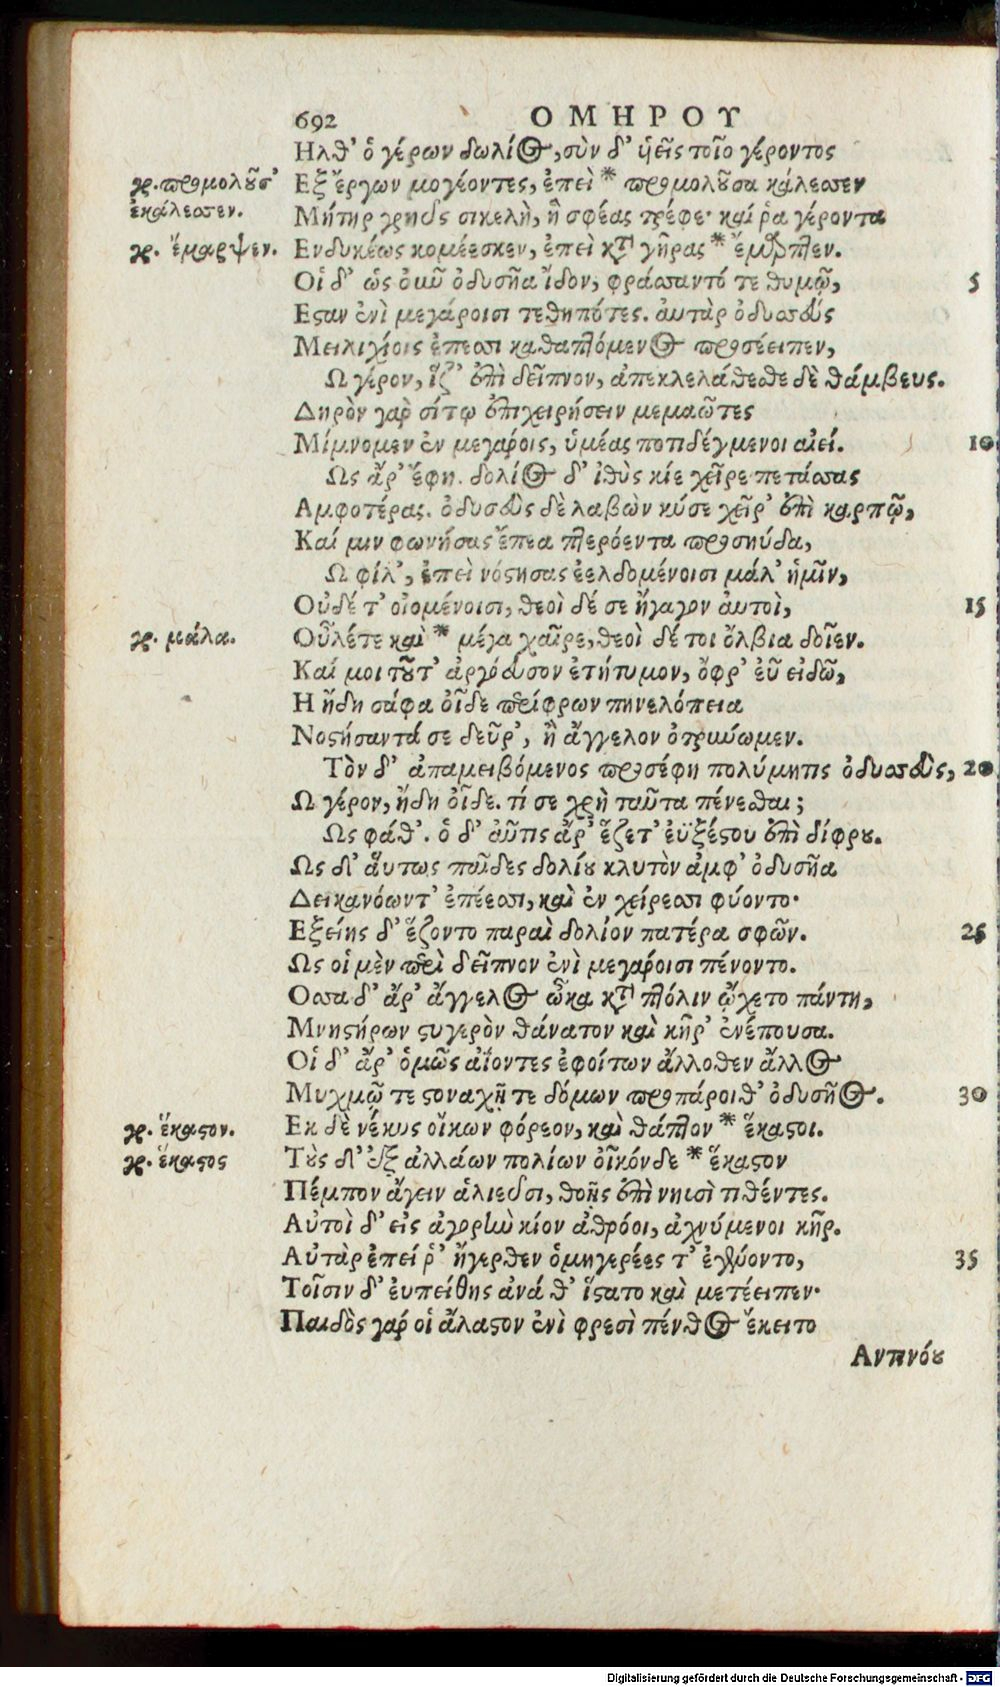 692 ΟΜΗΡΟΥ
Ηλθ' ὁ γέρων δολίος, σὺν δ' ὑεῖς τοῖο γέροντος
γρ. προμολοῦσ' Εξ ἔργων μογέοντες, ἐπεὶ * προμολοῦσα κάλεσσεν
ἐκάλεσσεν. Μήτηρ γρηῦς σικελὴ, ἥ σφέας τρέφε· καί ῥα γέροντα
γρ. ἔμαρψεν. Ενδυκέως κομέεσκεν, ἐπεὶ κατὰ γῆρας * ἔμαρπτεν.
Οἱ δ' ὡς οὖν ὀδυσῆα ἴδον, φράσσαντό τε θυμῷ, 5
Εσαν ἐνὶ μεγάροισι τεθηπότες. αὐτὰρ ὀδυσσεὺς
Μειλιχίοις ἐπεσσι καθαπτόμενος προσέειπεν,
Ω γέρον, ἵζ' ἐπὶ δεῖπνον, ἀπεκλελάθεσθε δὲ θάμβευς.
Δηρὸν γὰρ σίτῳ ἐπιχειρήσειν μεμαῶτες
Μίμνομεν ἐν μεγάροις, ὑμέας ποτιδέγμενοι αἰεί. 10
Ως ἄρ' ἔφη. δολίος δ' ἰθὺς κίε χεῖρε πετάσσας
Αμφοτέρας. ὀδυσεὺς δὲ λαβὼν κύσε χεῖρ' ἐπὶ καρπῷ,
Καί μιν φωνήσας ἔπεα πτερόεντα προσηύδα,
Ω φίλ', ἐπεὶ νόστησας ἐελδομένοισι μάλ' ἡμῖν,
Οὐδέ τ' οἰομένοισι, θεοὶ δέ σε ἤγαγον αὐτοὶ, 15
γρ. μάλα. Οὖλέτε καὶ * μέγα χαῖρε, θεοὶ δέ τοι ὄλβια δοῖεν.
Καί μοι τοῦτ' ἀγόρευσον ἐτήτυμον, ὄφρ' ἐῢ εἰδῶ,
Η ἤδη σάφα οἶδε περίφρων πηνελόπεια
Νοστήσαντά σε δεῦρ', ἢ ἄγγελον ὀτρύνωμεν.
Τὸν δ' ἀπαμειβόμενος προσέφη πολύμητις ὀδυσσεὺς, 20
Ω γέρον, ἤδη οἶδε. τί σε χρὴ ταῦτα πένεσθαι;
Ως φάθ'. ὁ δ' αὖτις ἄρ' ἕζετ' ἐϋξέστου ἐπὶ δίφρου.
Ως δ' αὕτως παῖδες δολίου κλυτὸν ἀμφ' ὀδυσῆα
Δεικανόωντ' ἐπέεσσι, καὶ ἐν χείρεσσι φύοντο·
Εξείης δ' ἕζοντο παραὶ δολίον πατέρα σφῶν. 25
Ως οἱ μὲν περὶ δεῖπνον ἐνὶ μεγάροισι πένοντο.
Οσσα δ' ἄρ' ἄγγελος ὦκα κατὰ πτόλιν ᾤχετο πάντη,
Μνηστήρων στυγερὸν θάνατον καὶ κῆρ' ἐνέπουσα.
Οἱ δ' ἄρ' ὁμῶς ἀΐοντες ἐφοίτων ἄλλοθεν ἄλλος
Μυχμῷ τε στοναχῇ τε δόμων προπάροιθ' ὀδυσῆος. 30
γρ. ἕκαστον. Εκ δὲ νέκυς οἴκων φόρεον, καὶ θάπτον * ἕκαστοι.
γρ. ἕκαστος Τοὺς δ' ἐξ ἀλλάων πολίων οἶκόνδε * ἕκαστον
Πέμπον ἄγειν ἁλιεῦσι, θοῇς ἐπὶ νηυσὶ τιθέντες.
Αὐτοὶ δ' εἰς ἀγορὴν κίον ἀθρόοι, ἀχνύμενοι κῆρ.
Αὐτὰρ ἐπεί ῥ' ἤγερθεν ὁμηγερέες τ' ἐγένοντο, 35
Τοῖσιν δ' ἐυπείθης ἀνά θ' ἵστατο καὶ μετέειπεν·
Παιδὸς γάρ οἱ ἄλαστον ἐνὶ φρεσὶ πένθος ἔκειτο
Αντινόου
Digitalisierung gefördert durch die Deutsche Forschungsgemeinschaft - DFG